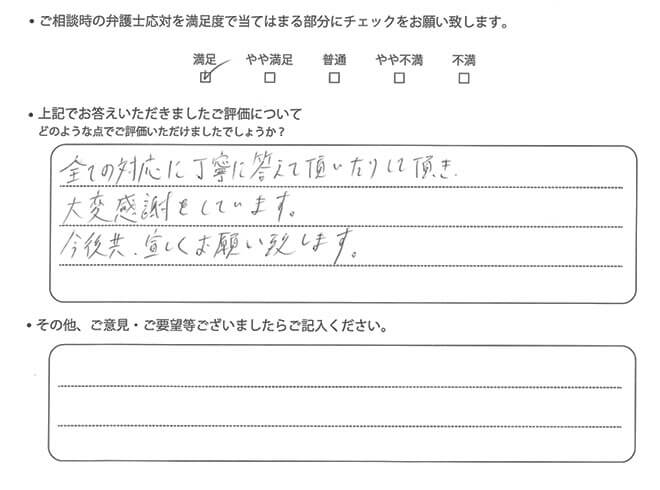 ・ご相談時の弁護士応対を満足度で当てはまる部分にチェックをお願い致します。
満足 やや満足 普通 やや不満 不満
・上記でお答えいただきましたご評価について
どのような点でご評価いただけましたでしょうか？
全ての対応に丁寧に答えて頂いたりして頂き、
大変感謝をしています。
今後共、宜しくお願い致します。
・その他、ご意見・ご要望等ございましたらご記入ください。